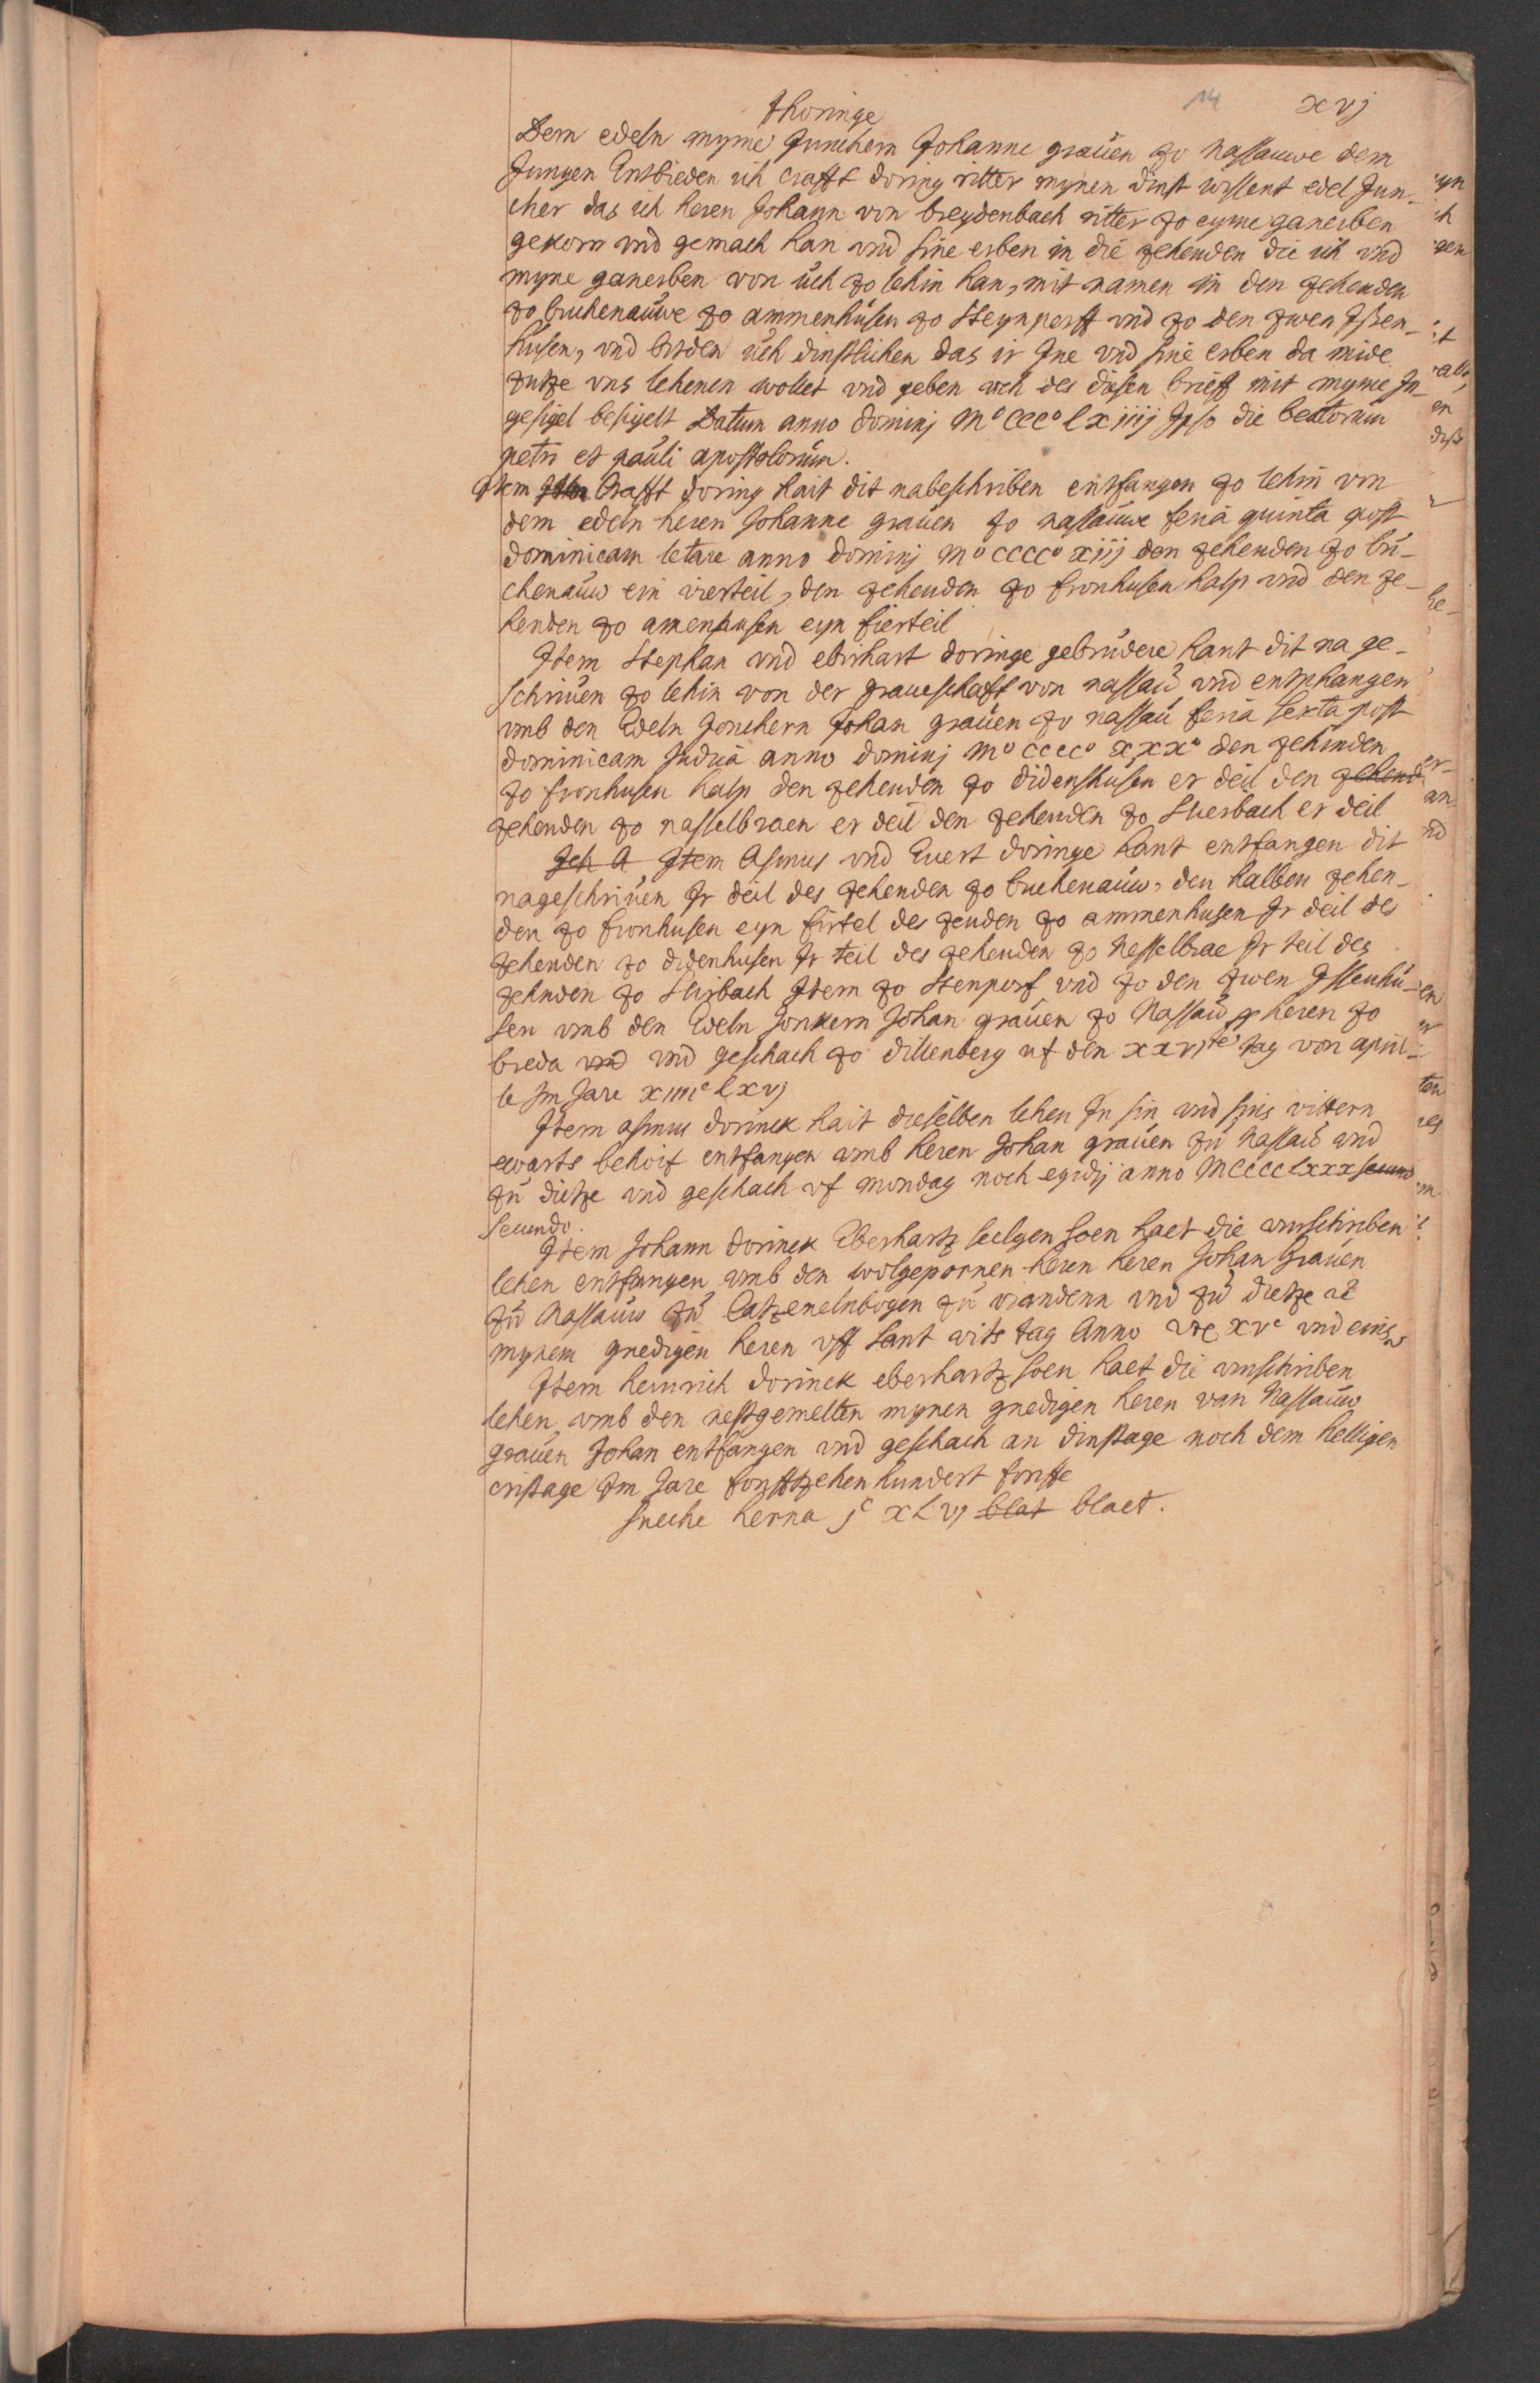 14 xvj
thoringe
Dem edeln myme Junchern Johanne grauen zo nassauwe dem
Jungen Entbieden ich crafft doring ritter mynen dinst wissent edel Jun-
cher das ich heren Johann von breydenbach ritter zo eyme ganerben
gekorn vnd gemach han vnd sine erben in die zehenden die ich vnd
myne ganerben von uch zo lehin han, mit namen in den zehenden
zo buchenauwe zo ammenhusen zo Steynperff vnd zo den zwen Jssen-
husen, vnd bidden uch dinstlichen das ir Jne vnd sine erben da mide
zutze vns lehenen wollet vnd geben uch des diesen brieff mit myme In-
gesigel besigelt Datum anno dominj Mo ccco lxiiij Ipso die beatorum
petri et pauli apostolorum.
Item Item Crafft doring hait dit nabeschriben entfangen zo lehin von
dem edeln heren Johanne grauen zo nassauwe feria quinta post
dominicam letare anno dominj mo cccco xiij den zehenden zo bu-
chenauw ein vierteil, den zehenden zo fronhusen halp vnd den ze-
henden zo amenhusen eyn fierteil
Item Stephan vnd ebirhart doringe gebrudere hant dit na ge-
schriuen zo lehin von der graueschaft von nassau vnd entphangen
vmb den Edeln Jonchern Johan grauen zo nassau feria sexta post
dominicam Judica anno dominj mo cccco xxxo den zehinden
zo fronhusen halp den zehenden zo didenshusen er deil den zehend
zehenden zo nasselbraen er deil den zehenden zo Stierbach er deil
Jch A Item Asmus vnd Euert doringe hant entfangen dit
nageschriuen Ir deil des zehenden zo buchenauw, den halben zehen-
den zo fronhusen eyn firtel des zenden zo ammenhusen Ir deil des
zehenden zo didenhusen Ir teil des zehenden zo Nesselbrae Ir teil des
zehnden zo Stirbach Item zo Stenperf vnd zo den zwen Jssenhu-
sen vmb den Edeln Jonkern Johan grauen zo Nassau heren zo
breda vnd vnd geschach zo dillenberg uf den xxvjte tag von apríl-
le Im Jare xiiijc lxvj
Item asmus dorinck hait dieselben lehen In sin vnd sins vittern
ewarts behoif entfangen vmb heren Johan grauen zu Nassau vnd
zu dietze vnd geschach vf mondag noch egidij anno Mcccclxxxsecund
secundo.
Item Johann dorinck Eberhartz seelgen soen haet die vurschriben
lehen entfangen vmb den wolgepornen heren heren Johan Grauen
zu Nassauw zu Catzenelnbogen zu viandenn vnd zu dietze
mynem gnedigen heren vff Sant vits tag Anno xvc vnd eins
Item heinrich dorinck eberhartz soen haet die vurschriben
lehen vmb den nestgemelten mynen gnedigen heren van Nassauw
grauen Johan entfangen vnd geschach an dinstage noch dem helligen
cristage Im Jare fonffzehenhundert fonffe
Sueche herna jc xLvj blat blaet.